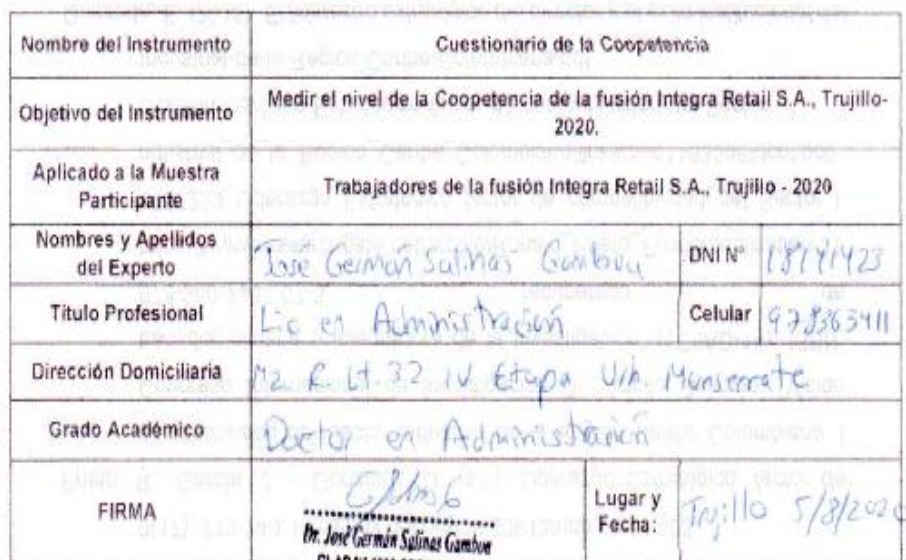 Nombre del Instrumento Cuestionario de la Coopetencia
Objetivo del Instrumento Medir el nivel de la Coopetencia de la fusión Integra Retail S.A., Trujillo-
2020.
Aplicado a la Muestra
Participante Trabajadores de la fusión Integra Retail S.A., Trujillo - 2020
Nombres y Apellidos
del Experto Jose Germán Salinas Gamboa DNI N° 18141423
Título Profesional Lic en Administración Celular 978363411
Dirección Domiciliaria Mz R Lt 32 IV Etapa Urb Monserrate
Grado Académico Doctor en Administración
FIRMA Lugar y
Fecha: Trujillo 5/8/2020
Dr. José Germán Salinas Gamboa